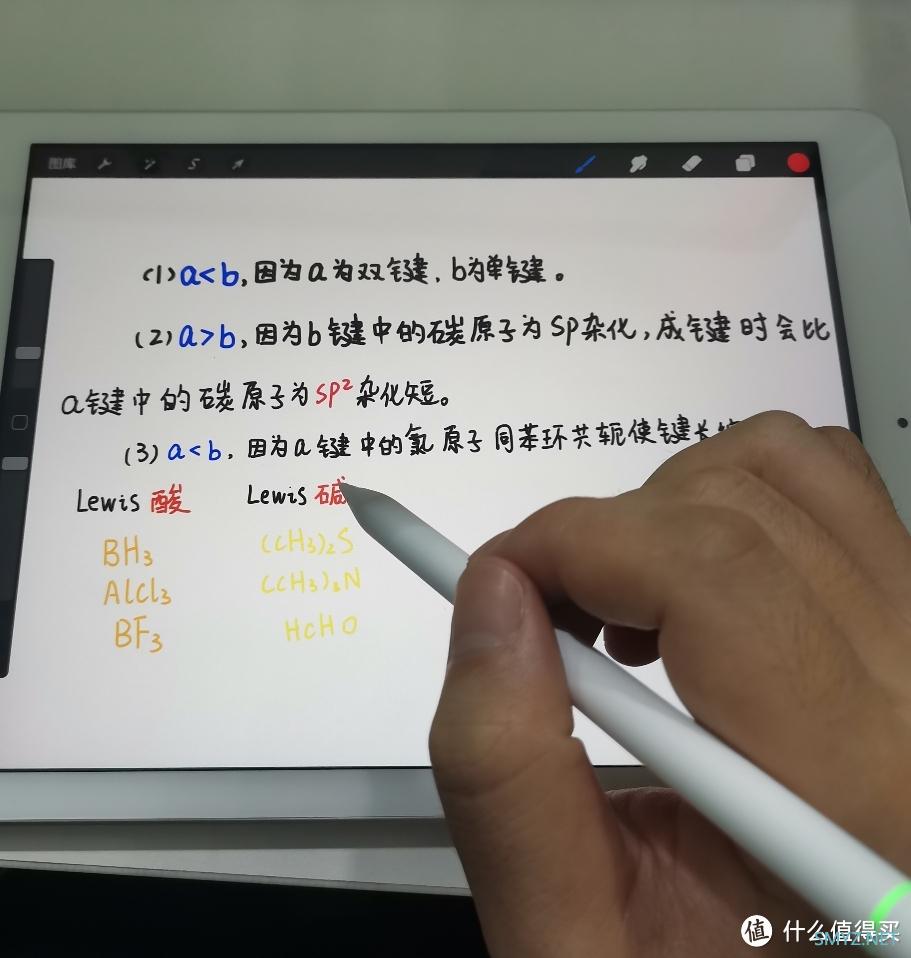 图库
(1) a<b, 因为a为双键, b为单键。
(2) a>b, 因为b键中的碳原子为SP杂化, 成键时会比
a键中的碳原子为SP²杂化短。
(3) a<b, 因为a键中的氯原子同苯环共轭使键长
Lewis 酸 Lewis 碱
BH₃ (CH₃)₂S
AlCl₃ (CH₃)₃N
BF₃ HCHO
值 什么值得买
SMYZ.NET